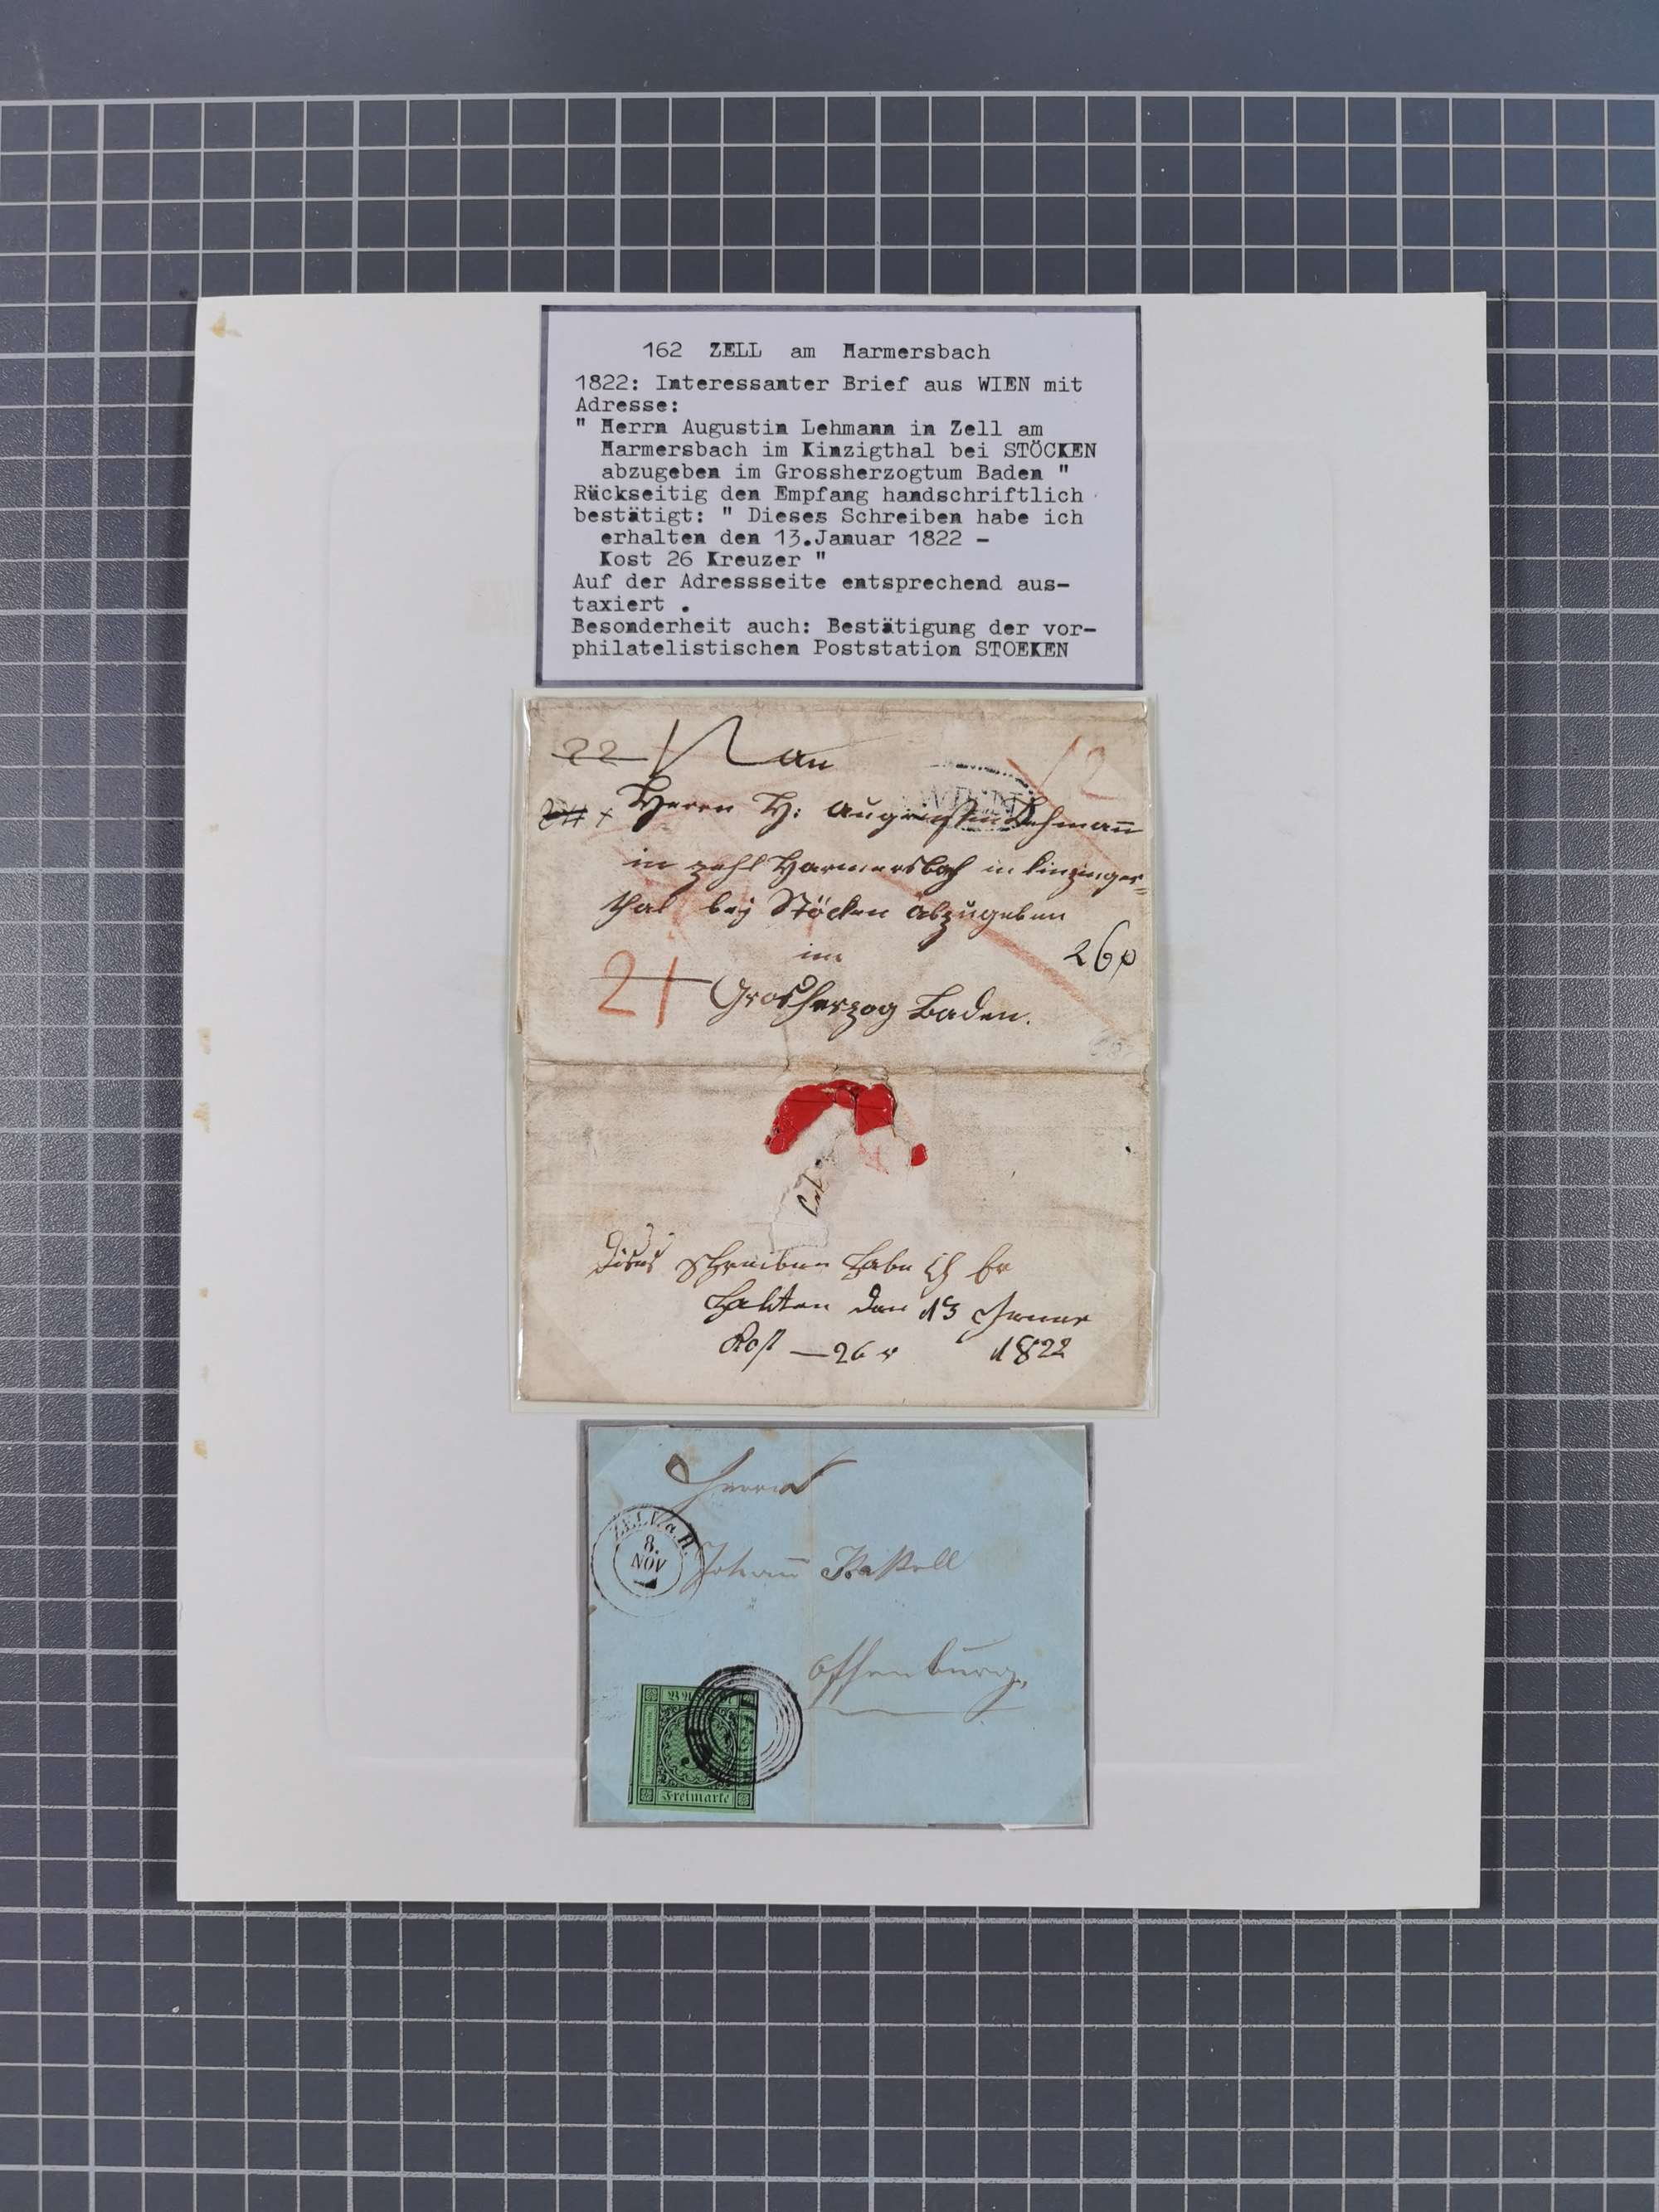 162 ZELL am Harmersbach
1822: Interessanter Brief aus WIEN mit
Adresse:
" Herrn Augustin Lehmann in Zell am
Harmersbach im Kinzigthal bei STÖCKEN
abzugeben im Grossherzogtum Baden "
Rückseitig den Empfang handschriftlich
bestätigt: " Dieses Schreiben habe ich
erhalten den 13.Januar 1822 -
Kost 26 Kreuzer "
Auf der Adressseite entsprechend aus-
taxiert .
Besonderheit auch: Bestätigung der vor-
philatelistischen Poststation STOEKEN
22 an
12
WIEN
Herrn H: Augustin Lehmann
in zehl Harmersbach in kinzinger=
thal bey Stöcken abzugeben
im
26
21
Grosherzog Baden.
Dises schreiben habe ich Er
halten den 13 Jenner
Kost — 26 x 1822
Herrn
ZELL a. H.
8.
NOV
Johann
Offenburg.
BADEN
Freimarke